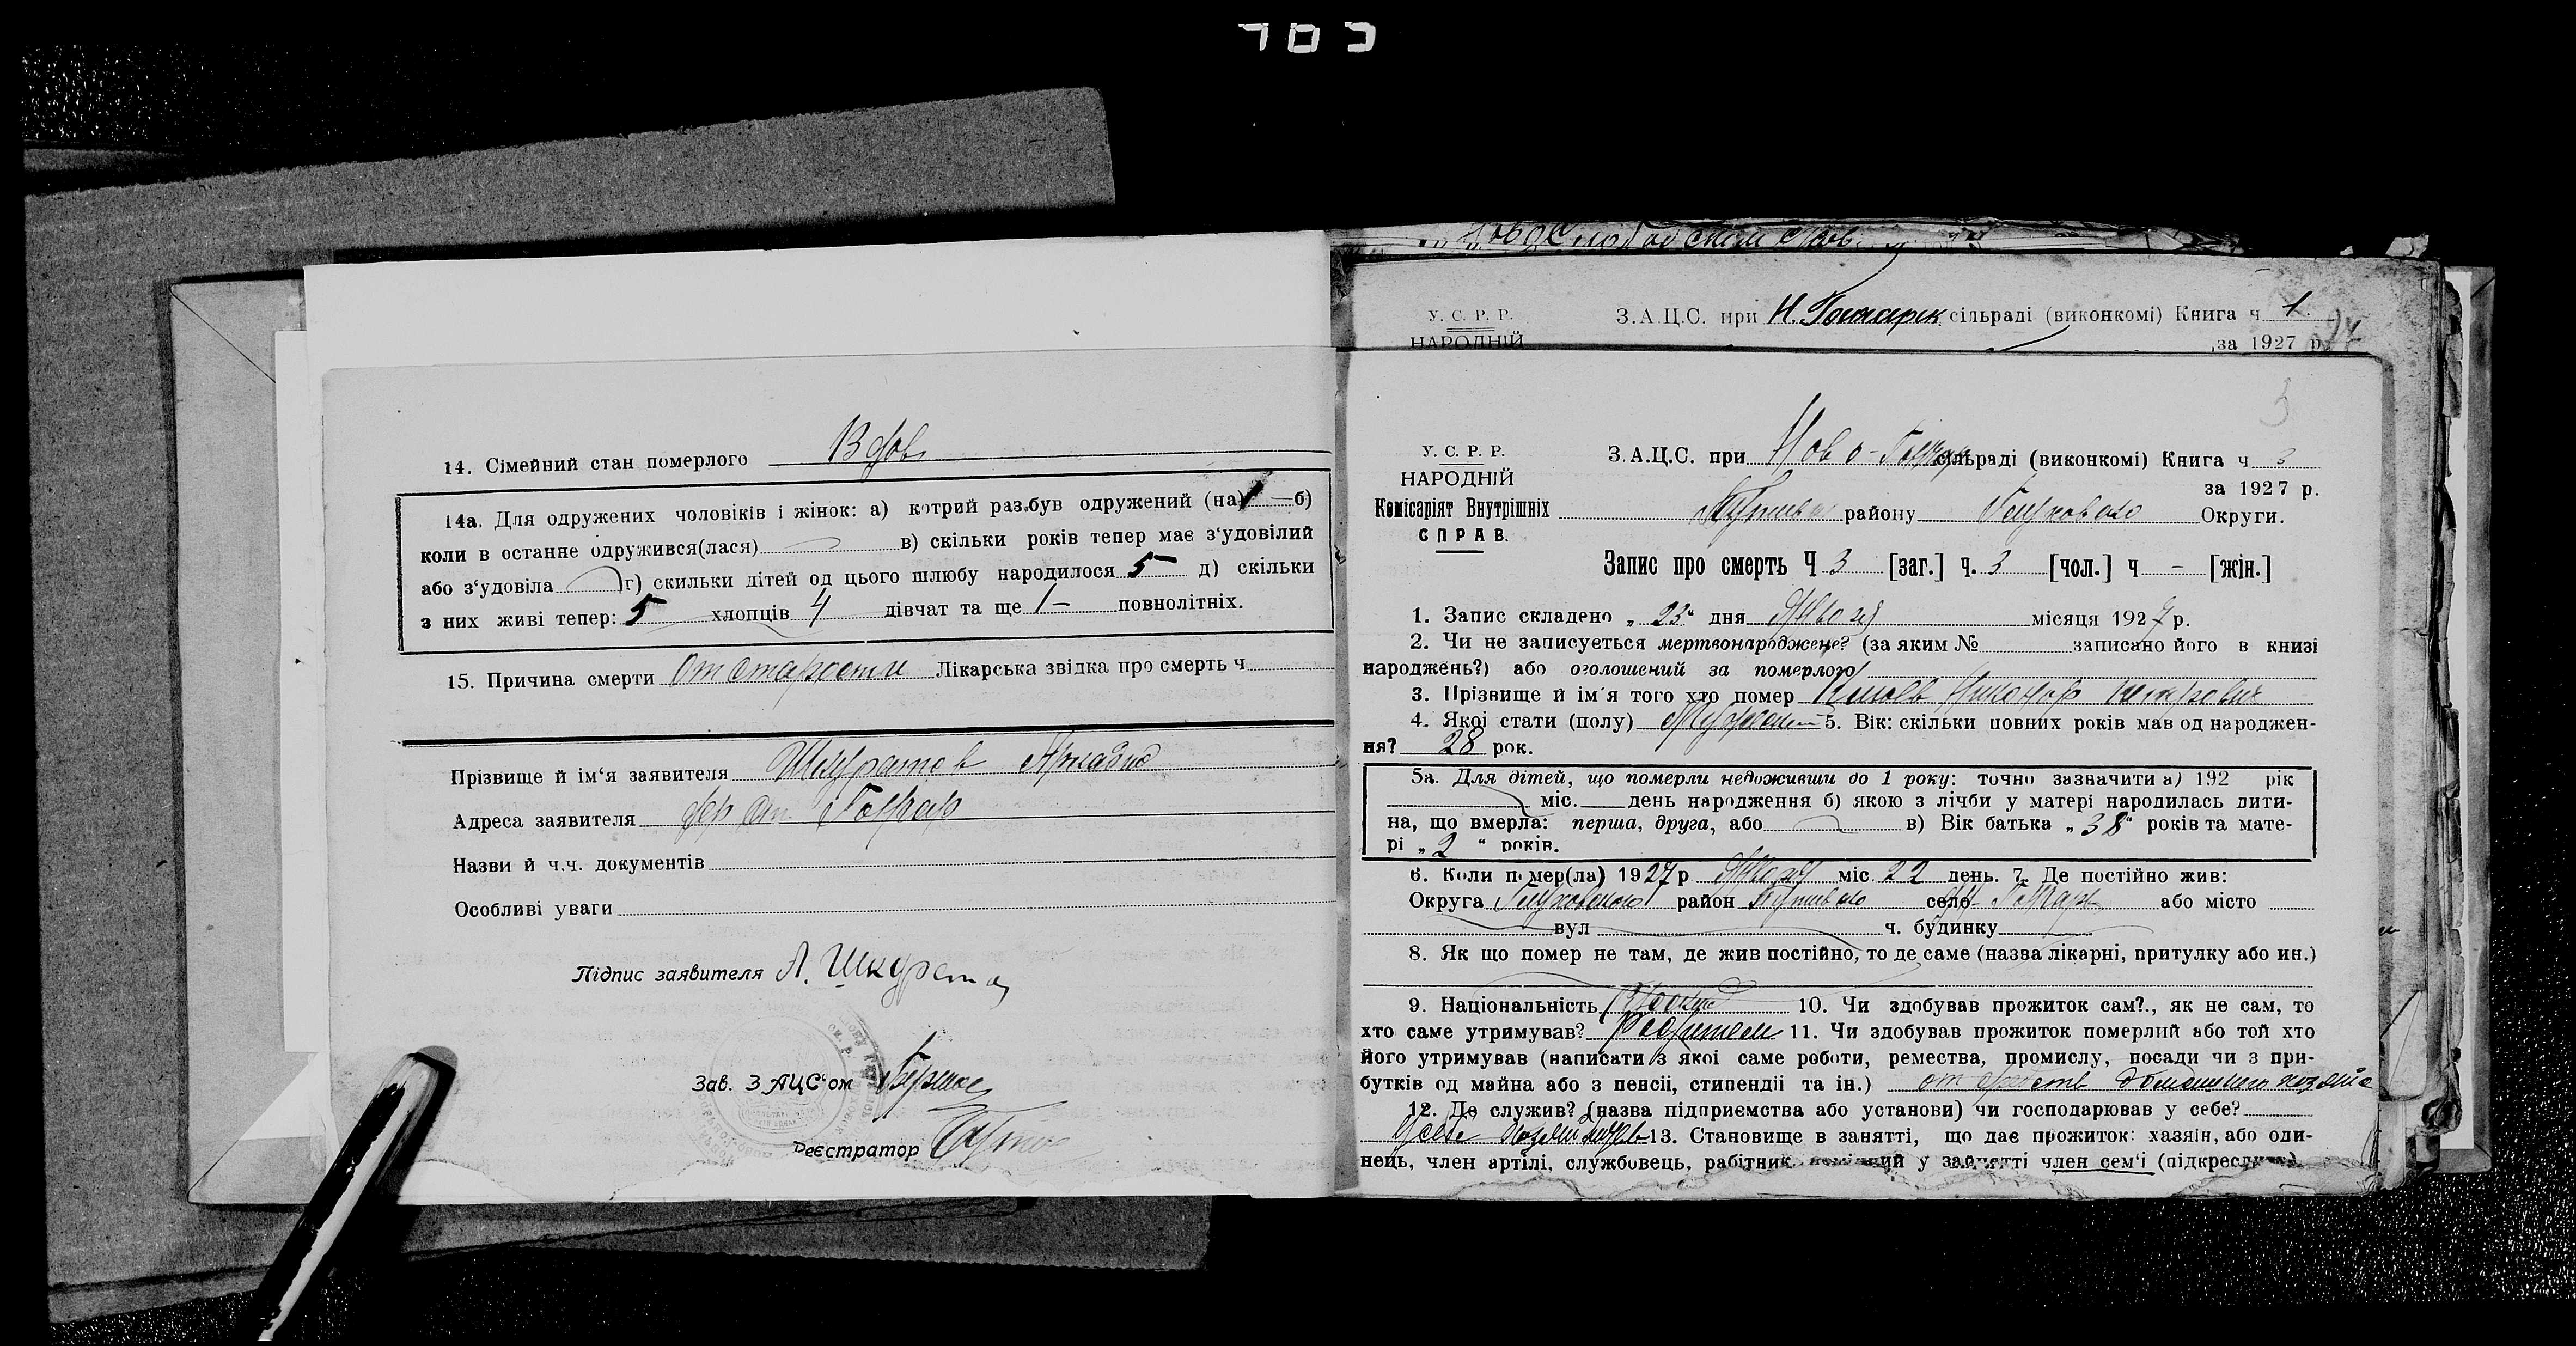 14. Сімейний стан померлого Вдов
14а. Для одружених чоловіків і жінок: а) котрий раз був одружений (на) 1 — б)
коли в останне одружився(лася) в) скільки років тепер має з‘удовілий
або з‘удовіла г) скильки дітей од цього шлюбу народилося 5 д) скільки
з них живі тепер: 5 хлопців 4 дівчат та ще 1 – повнолітніх.
15. Причина смерти От старости Лікарська звідка про смерть ч.
Прізвище й ім‘я заявителя Шкуратов Аркадий
Адреса заявителя
Назви й ч.ч. документів
Особливі уваги
Підпис заявителя А. Шкурато
Зав. ЗАЦС‘ом
Реєстратор
У. С. Р. Р. З.А.Ц.С. при Н. Гончарск. сільраді (виконкомі) Книга ч 1.
НАРОДНІЙ за 1927 р.
3
У. С. Р. Р. З.А.Ц.С. при Ново-Гончар сільраді (виконкомі) Книга ч 3
НАРОДНІЙ за 1927 р.
Комісаріят Внутрішніх Путивл району Глуховсько Округи.
СПРАВ.
Запис про смерть Ч 3 [заг.] ч. 3 [чол.] ч – [жін.]
1. Запис складено „ 23 “ дня місяця 1927 р.
2. Чи не записується мертвонароджене? (за яким № записано його в книзі
народжень?) або оголошений за померлого
3. Прізвище й ім‘я того хто помер Никанор Петрович
4. Якої стати (полу) 5. Вік: скільки повних років мав од народжен-
ня? 28 рок.
5а. Для дітей, що померли недоживши до 1 року: точно зазначити а) 192 рік
міс. день народження б) якою з лічби у матері народилась дити-
на, що вмерла: перша, друга, або в) Вік батька „ 38 “ років та мате-
рі „ 2 “ років.
6. Коли помер(ла) 1927 р міс. 22 день. 7. Де постійно жив:
Округа Глуховского район Путивльско село або місто
вул ч. будинку
8. Як що помер не там, де жив постійно, то де саме (назва лікарні, притулку або ин.)
9. Національність 10. Чи здобував прожиток сам?., як не сам, то
хто саме утримував? Родители 11. Чи здобував прожиток померлий або той хто
його утримував (написати з якої саме роботи, ремества, промислу, посади чи з при-
бутків од майна або з пенсії, стипендії та ін.) от средств домашнего хозяйс
12. Де служив? (назва підприємства або установи) чи господарював у себе?
13. Становище в занятті, що дає прожиток: хазяїн, або оди-
нець, член артілі, службовець, робітник, у занятті член сем‘ї (підкреслити)